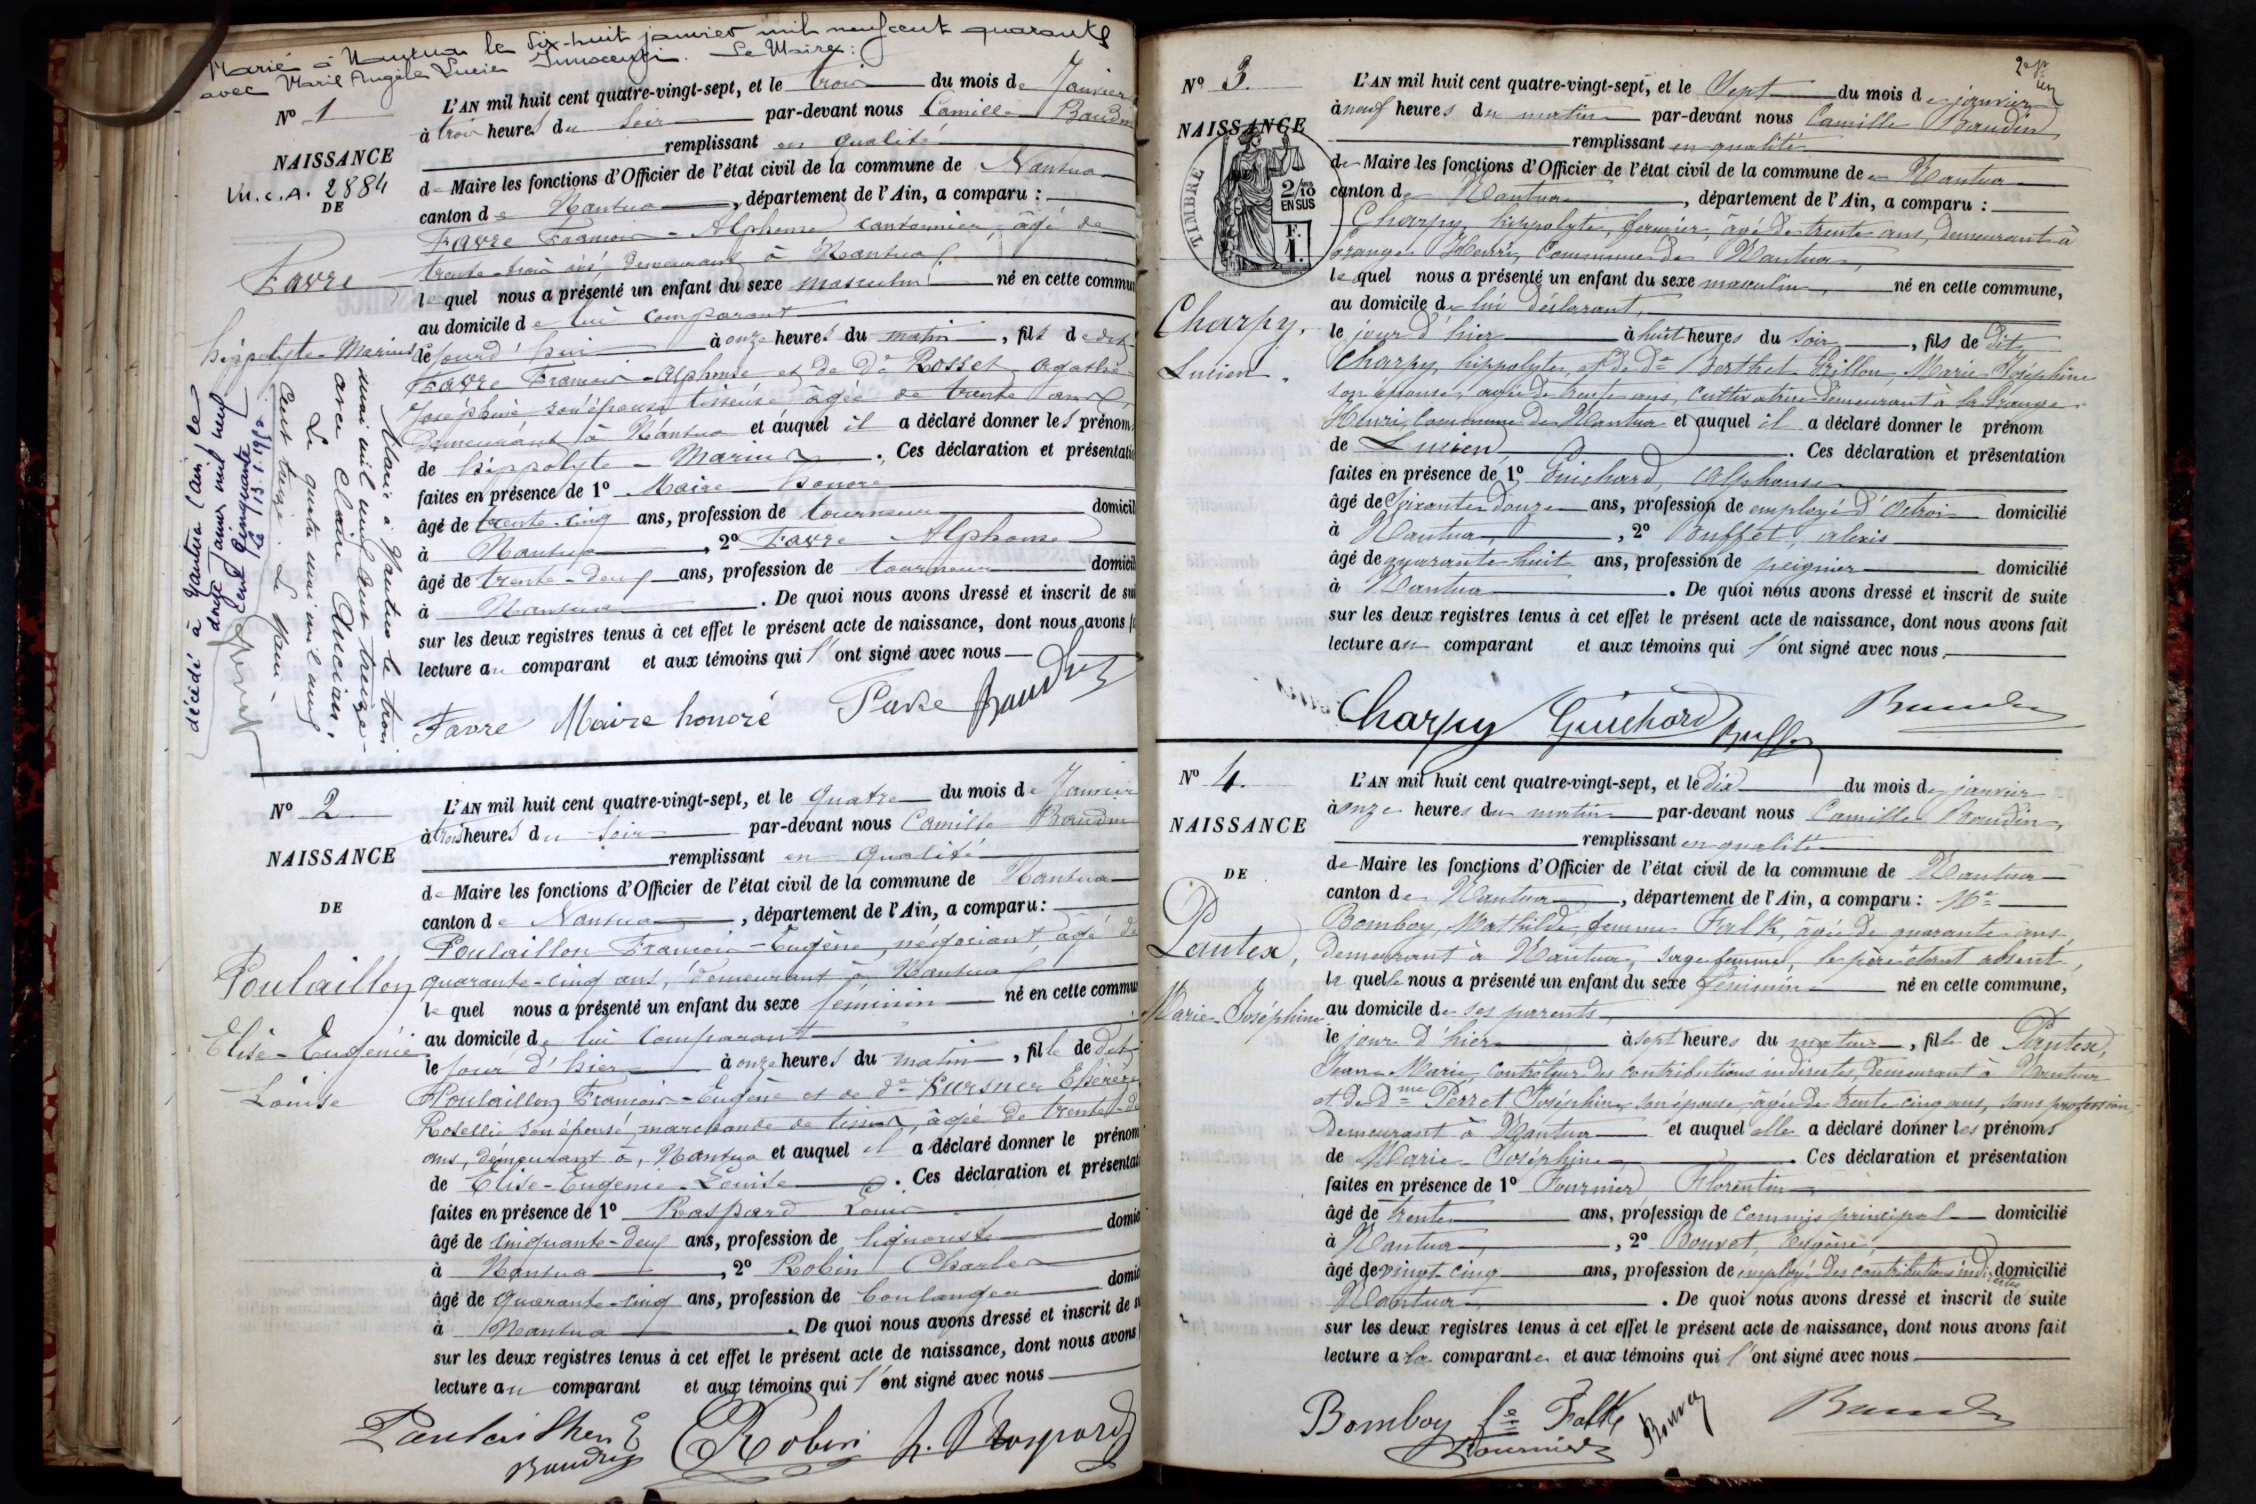 Marié à Nantua le dix-huit janvier mil neuf cent quarante
avec Marie Angèle Lucie Innocenti. Le Maire:
Nº 1
NAISSANCE
M.C.A. 2884
DE
Favre
hippolyte-Marius
L'AN mil huit cent quatre-vingt-sept, et le trois du mois de Janvier
à trois heures du soir par-devant nous Camille Baudin
remplissant en qualité
de Maire les fonctions d'Officier de l'état civil de la commune de Nantua
canton de Nantua, département de l'Ain, a comparu :
Favre François-Alphonse cantonnier, âgé de
trente-trois ans, demeurant à Nantua
lequel nous a présenté un enfant du sexe masculin né en cette commu
au domicile de lui comparant
le jourd'hui à onze heures du matin, fils de dit
Favre François-Alphonse et de De Rosset Agathe
Joséphine son épouse tisseuse âgée de trente ans,
demeurant à Nantua et auquel il a déclaré donner les prénom
de hippolyte-Marius. Ces déclaration et présentatio
faites en présence de 1º Maire honoré
âgé de trente-cinq ans, profession de tourneur domicil
à Nantua, 2º Favre Alphonse
âgé de trente-deux ans, profession de tourneur domicil
à Nantua. De quoi nous avons dressé et inscrit de su
sur les deux registres tenus à cet effet le présent acte de naissance, dont nous avons f
lecture au comparant et aux témoins qui l'ont signé avec nous
Favre Maire honoré Favre Baudin
Marié à Nantua le trois
mai mil neuf cent treize
avec Claire
Le quatre mai mil neuf
cent treize. Le Maire
décédé à Nantua (Ain) le
douze Janvier mil neuf
cent cinquante
Le 13.1.1950
Nº 2
NAISSANCE
DE
Poulaillon
Elise-Eugénie
Louise
L'AN mil huit cent quatre-vingt-sept, et le quatre du mois de Janvier
à trois heures du soir par-devant nous Camille Baudin
remplissant en qualité
de Maire les fonctions d'Officier de l'état civil de la commune de Nantua
canton de Nantua, département de l'Ain, a comparu :
Poulaillon François-Eugène, négociant, âgé de
quarante-cinq ans, demeurant à Nantua
lequel nous a présenté un enfant du sexe féminin né en cette commu
au domicile de lui comparant
le jour d'hier à onze heures du matin, fille de dit
Poulaillon François-Eugène et de De
son épouse, marchande de tissus, âgée de trente-
ans, demeurant à Nantua et auquel il a déclaré donner le prénom
de Elise-Eugénie-Louise. Ces déclaration et présentat
faites en présence de 1º Raspard Louis
âgé de cinquante-deux ans, profession de liquoriste domic
à Nantua, 2º Robin Charles
âgé de quarante-cinq ans, profession de boulanger domic
à Nantua. De quoi nous avons dressé et inscrit de s
sur les deux registres tenus à cet effet le présent acte de naissance, dont nous avons
lecture au comparant et aux témoins qui l'ont signé avec nous
Poulaillon E Robin L. Raspard
Baudin
Nº 3.
NAISSANCE
TIMBRE
2/10
EN SUS
F.
1.
Charpy,
Lucien
L'AN mil huit cent quatre-vingt-sept, et le Sept du mois de janvier
à neuf heures du matin par-devant nous Camille Baudin,
remplissant en qualité
de Maire les fonctions d'Officier de l'état civil de la commune de Nantua
canton de Nantua, département de l'Ain, a comparu :
Charpy hippolyte, fermier, âgé de trente ans, demeurant à
grange Henri, Commune de Nantua,
lequel nous a présenté un enfant du sexe masculin, né en cette commune,
au domicile de lui déclarant,
le jour d'hier à huit heures du soir, fils de dit
Charpy hippolyte, et de De Berthet Grillon, Marie Joséphine
son épouse, âgée de trente ans, cultivatrice demeurant à la Grange
Henri, Commune de Nantua et auquel il a déclaré donner le prénom
de Lucien. Ces déclaration et présentation
faites en présence de 1º Guichard, Alphonse
âgé de soixante douze ans, profession de employé d'Octroi domicilié
à Nantua, 2º Buffet, alexis
âgé de quarante huit ans, profession de peignier domicilié
à Nantua. De quoi nous avons dressé et inscrit de suite
sur les deux registres tenus à cet effet le présent acte de naissance, dont nous avons fait
lecture au comparant et aux témoins qui l'ont signé avec nous.
Charpy Guichard Buffet Baudin
Nº 4.
NAISSANCE
DE
Pantex,
Marie-Joséphine
L'AN mil huit cent quatre-vingt-sept, et le dix du mois de janvier
à onze heures du matin par-devant nous Camille Baudin,
remplissant en qualité
de Maire les fonctions d'Officier de l'état civil de la commune de Nantua
canton de Nantua, département de l'Ain, a comparu : Me
Bomboy Mathilde femme Falk, âgée de quarante ans,
demeurant à Nantua, sage femme, le père étant absent,
laquelle nous a présenté un enfant du sexe féminin né en cette commune,
au domicile de ses parents
le jour d'hier à sept heures du matin, fille de Pantex,
Jean-Marie, contrôleur des contributions indirectes, demeurant à Nantua
et de dme Perret Joséphine, son épouse, âgée de trente cinq ans, sans profession,
demeurant à Nantua et auquel elle a déclaré donner les prénoms
de Marie-Joséphine. Ces déclaration et présentation
faites en présence de 1º Fournier Florentin
âgé de trente ans, profession de commis principal domicilié
à Nantua, 2º Bouvet, Eugène,
âgé de vingt-cinq ans, profession de employé des contributions indirectes domicilié
Nantua. De quoi nous avons dressé et inscrit de suite
sur les deux registres tenus à cet effet le présent acte de naissance, dont nous avons fait
lecture a la comparante et aux témoins qui l'ont signé avec nous
Bomboy fe Falk Bouvet Baudin
Fournier